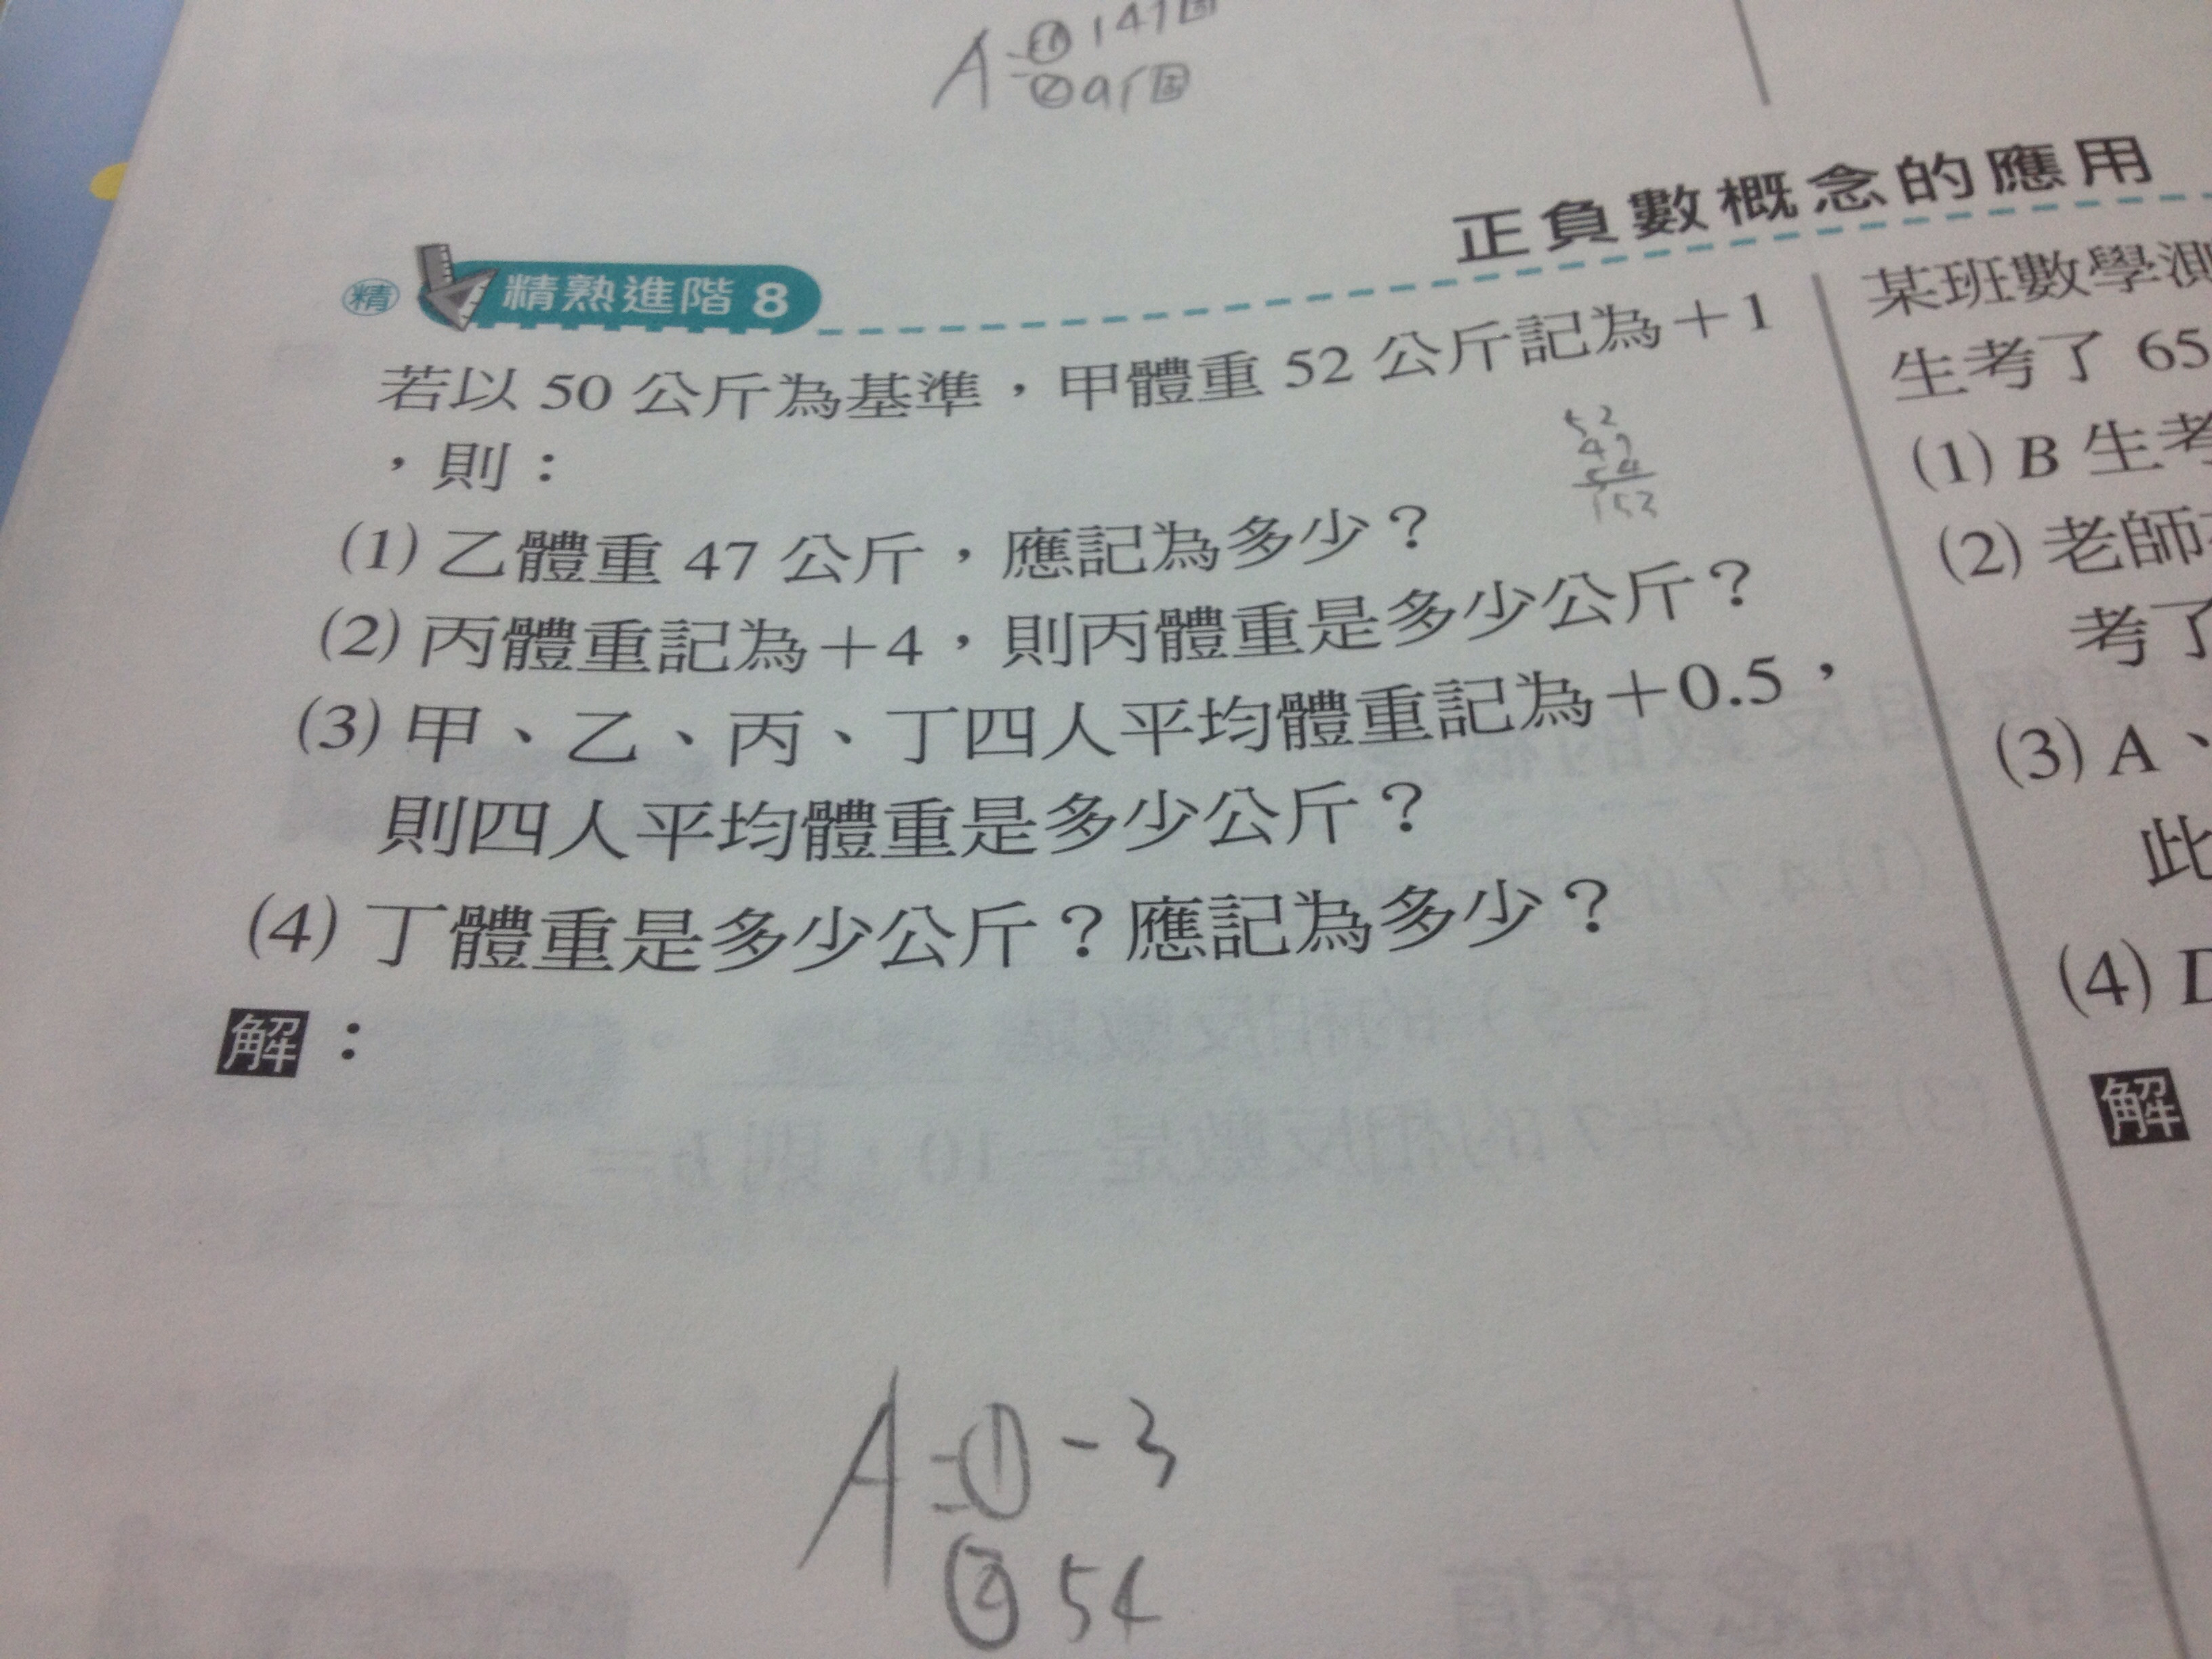 A=① 141個
② 91個
正負數概念的應用
精 精熟進階 8
若以 50 公斤為基準，甲體重 52 公斤記為+1
，則：
52
47
54
153
(1) 乙體重 47 公斤，應記為多少？
(2) 丙體重記為+4，則丙體重是多少公斤？
(3) 甲、乙、丙、丁四人平均體重記為+0.5，
則四人平均體重是多少公斤？
(4) 丁體重是多少公斤？應記為多少？
解：
A=① -3
② 54
某班數學測
生考了 65
(1) B 生考
(2) 老師
考了
(3) A、
此
(4) D
解